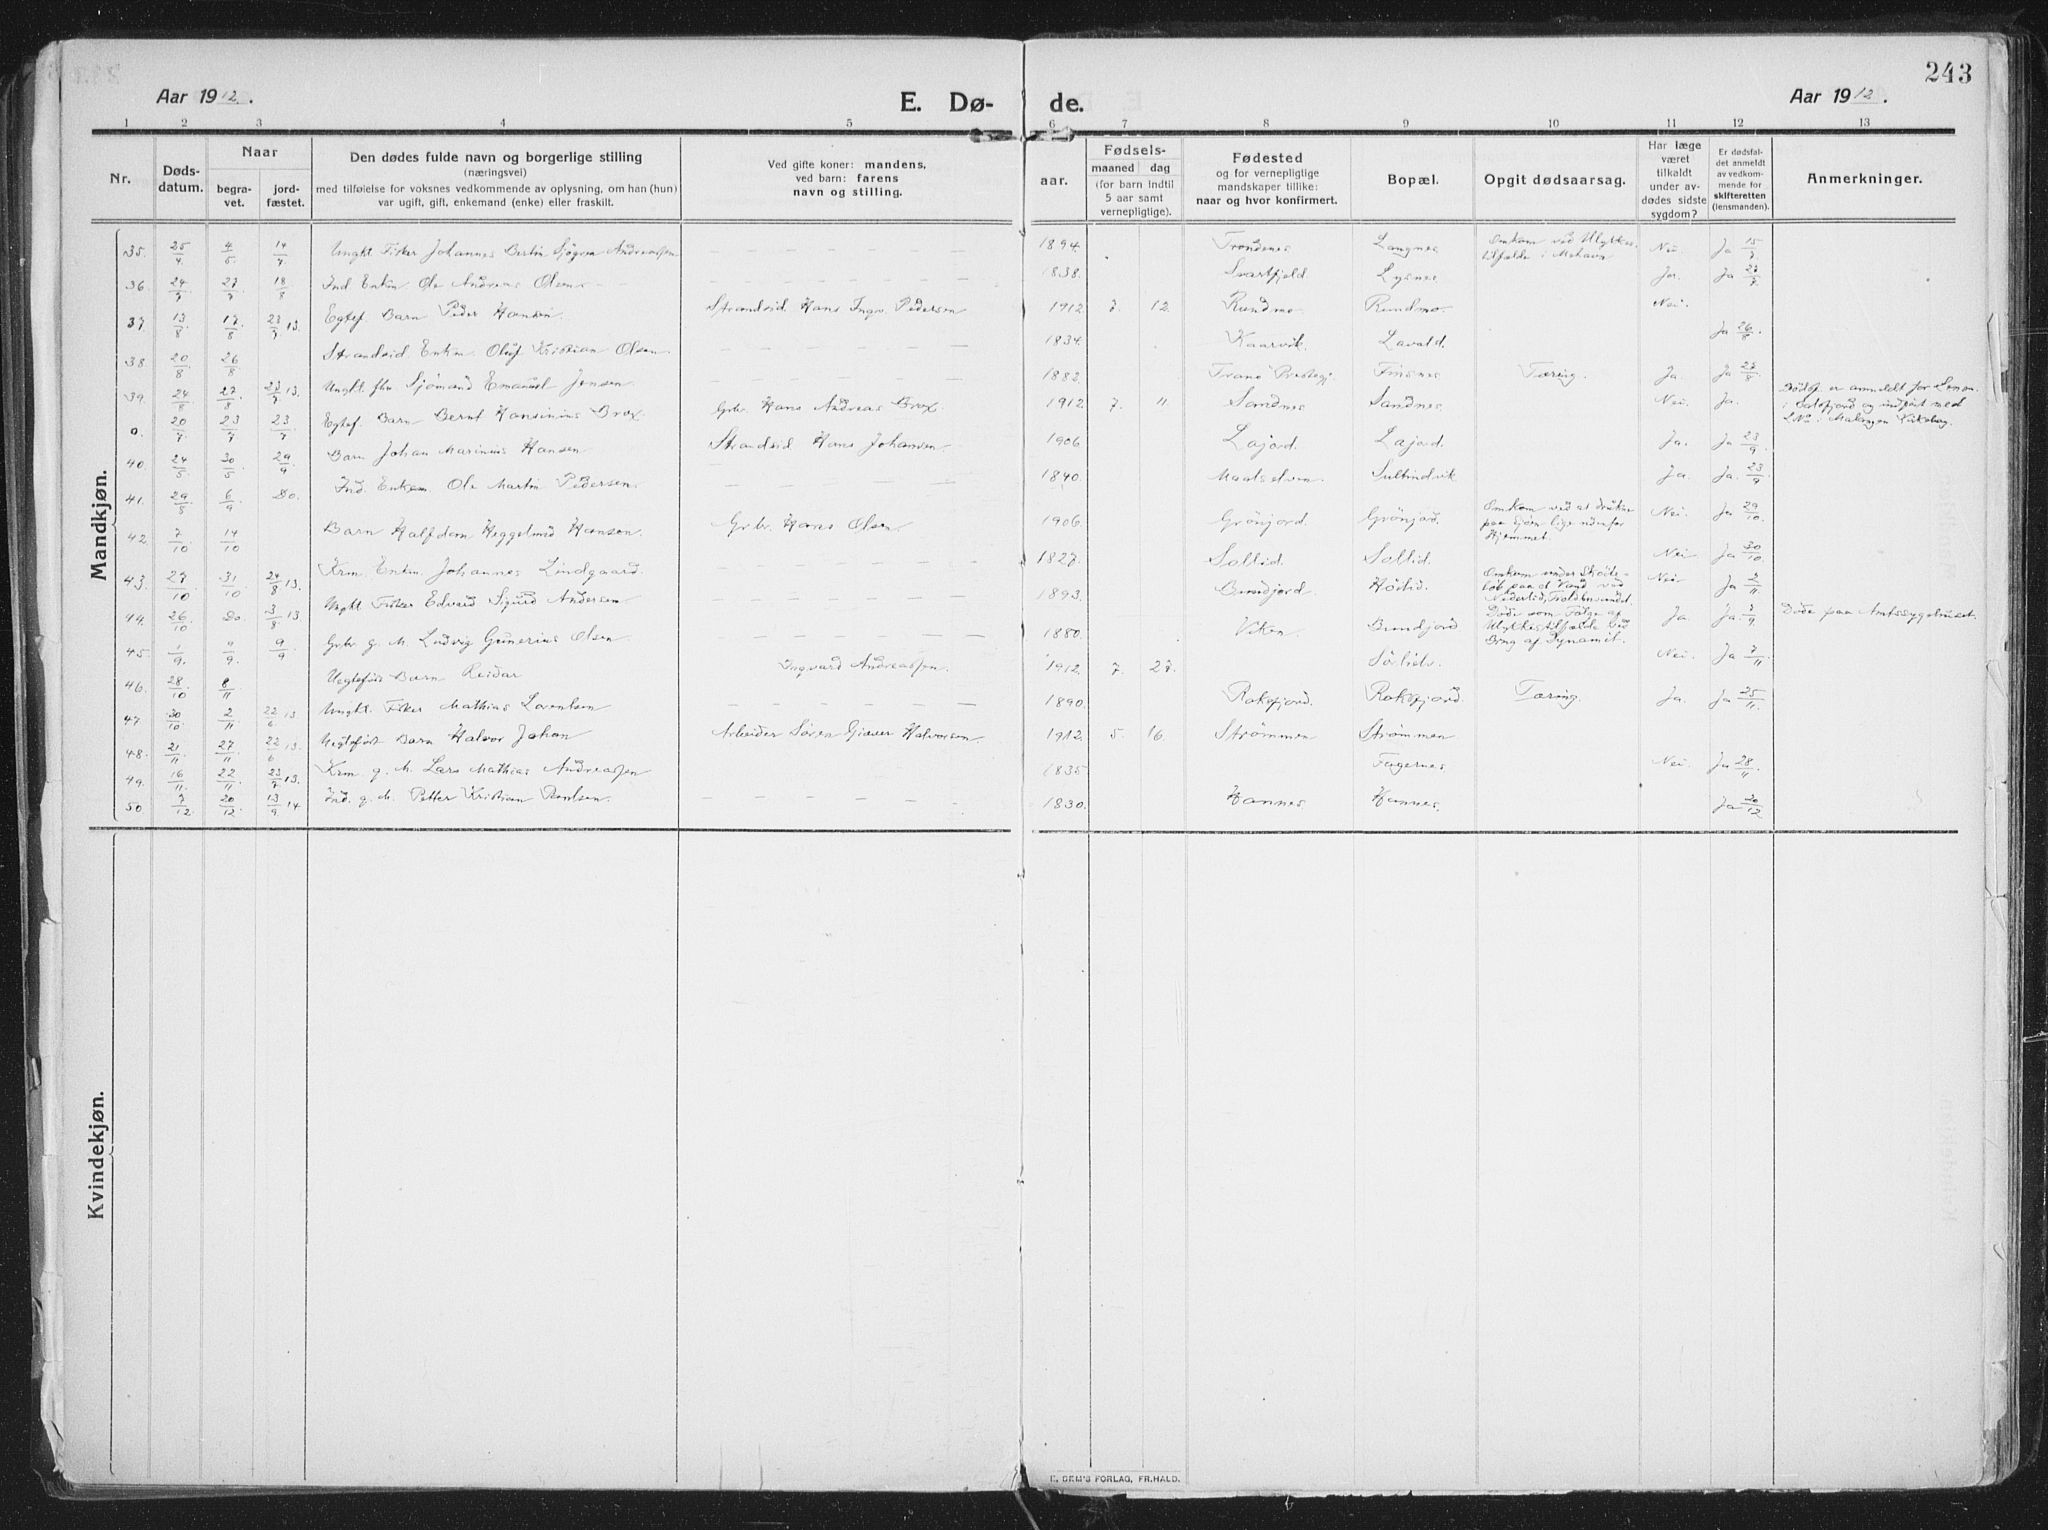 243
Aar 1912.
E. Dø-
de.
Aar 1912.
1 2 3 4 5 6 7 8 9 10 11 12 13
Nr.
Døds-
datum.
Naar
begra-
vet.
jord-
fæstet.
Den dødes fulde navn og borgerlige stilling
(næringsvei)
med tilføielse for voksnes vedkommende av oplysning, om han (hun)
var ugift, gift, enkemand (enke) eller fraskilt.
Ved gifte koner: mandens,
ved barn: farens
navn og stilling.
Fødsels-
aar.
maaned dag
(for barn indtil
5 aar samt
vernepligtige).
Fødested
og for vernepligtige
mandskaper tillike:
naar og hvor konfirmert.
Bopæl.
Opgit dødsaarsag.
Har læge
været
tilkaldt
under av-
dødes sidste
sygdom?
Er dødsfal-
det anmeldt
av vedkom-
mende for
skifteretten
(lensmanden).
Anmerkninger.
Mandkjøn.
35. 25/4 4/5 14/7 Ungkl Fisker Johannes Bertin Sjøgren Andreassen 1894. Trondenes Langnes Omkom ved Ulykkes-
tilfælde i Mehavn Nei. Ja 15/7
36. 24/7 27/7 18/8 Ind Enkm Ole Andreas Olsen 1838. Svartfjeld Lysnes Ja. Ja 27/7
37. 13/8 17/8 23/7 13. Egtef. Barn Peder Hansen Strandsid. Hans Ingv. Pedersen 1912 7. 12. Rundmo Rundmo Nei.
38. 20/8 26/8 Strandsid. Enkm. Oluf Kristian Olsen 1834. Kaarvik. Lavold. Ja 26/8
39. 24/8 27/8 23/7 13. Ungkl. fhv Sjømand Emanuel Jensen 1882. Tranø Prestegj. Finsnes Tæring. Ja. Ja 27/8
0. 20/7 23/7 23/7 Egtef. Barn Bernt Hansinius Brox. Grbr. Hans Andreas Brox. 1912. 7. 11 Sandnes Sandnes Nei. Ja. Dødsf. er anmeldt for Lensm.
i Balsfjord og indført med
L.No i Malangen Kirkebog.
40. 24/5 30/5 29/9 Barn Johan Marinius Hansen Strandsid Hans Johansen 1906 Lajord. Lajord. Ja. Ja 23/9
41. 29/8 6/9 Do. Ind. Enkem. Ole Martin Pedersen 1840. Maalselven Sultindvik Ja. Ja. 23/9
42. 7/10 14/10 Barn Halfdan Heggelund Hansen. Grbr. Hans Olsen 1906. Grönjord. Grönjord. Omkom ved at drukne
paa Sjøen lige nedenfor
Hjemmet. Nei. Ja 29/10.
43. 27/10 31/10 24/8 13. Krm. Enkm. Johannes Lindgaard. 1827. Sollid. Sollid. Nei Ja 30/10.
44. 26/10 Do 3/8 13 Ungkl Fisker Edvard Sigurd Andersen 1893. Bundjord. Höilid. Omkom under Skøite-
løb paa et Vand ved
Nederlid, Foldenvandet. Nei Ja 2/11
45. 1/9. 9/9. 9/9 Grbr g. M. Ludvig Gunerius Olsen 1880. Viken Bundjord Døde som Følge af
Ulykkestilfælde ved
Brug af Dynamit. Ja. Ja. 7/11 Døde paa Amtssygehuset.
46. 28/10 8/11 Uegteføt Barn Reidar Ingvard Andreassen. 1912. 7. 27. Sörlidv. Nei. Ja 7/11
47. 30/10. 2/11 22/6. 13 Ungkl. Fisker Mathias Lorentsen 1890. Roksfjord. Roksfjord. Tæring Ja. Ja 25/11
48. 21/11 27/11 22/6 13. Uegteføt Barn Halvor Johan Arbeider Søren Giæver Halvorsen 1912. 5. 16. Strømmen Strømmen
49. 16/11. 22/11 23/7 13. Krm. g. M. Lars Mathias Andreassen 1835 Fagernes Nei. Ja 28/11
50 7/12. 20/12 13/9 14 Ind. g. M. Petter Kristian Paulsen 1830. Hannes Hannes. Ja 30/12
Kvindekjøn.
E. SEM'S FORLAG, FR.HALD.